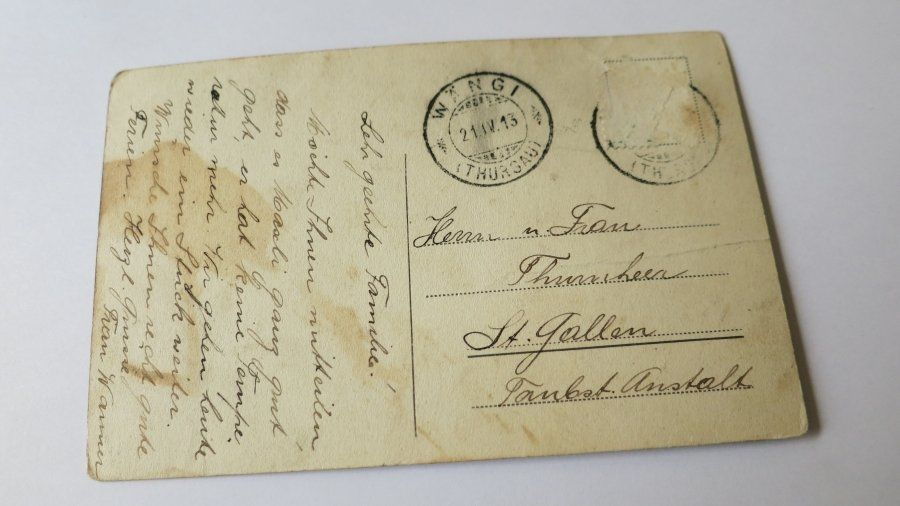 Sehr geehrte Familie!
Möchte Ihnen mitteilen
dass es Maali ganz gut
geht, er hat keine Tempe-
ratur mehr. Wir gehen heute
wieder ein Stück weiter.
Wünsche Ihnen recht gute
Ferien. Herzl. Gruss
Frau Wanner
WÄNGI
21.IV.13
(THURGAU)
(TH
Herrn u. Frau
Thurnheer
St. Gallen
Taubst. Anstalt